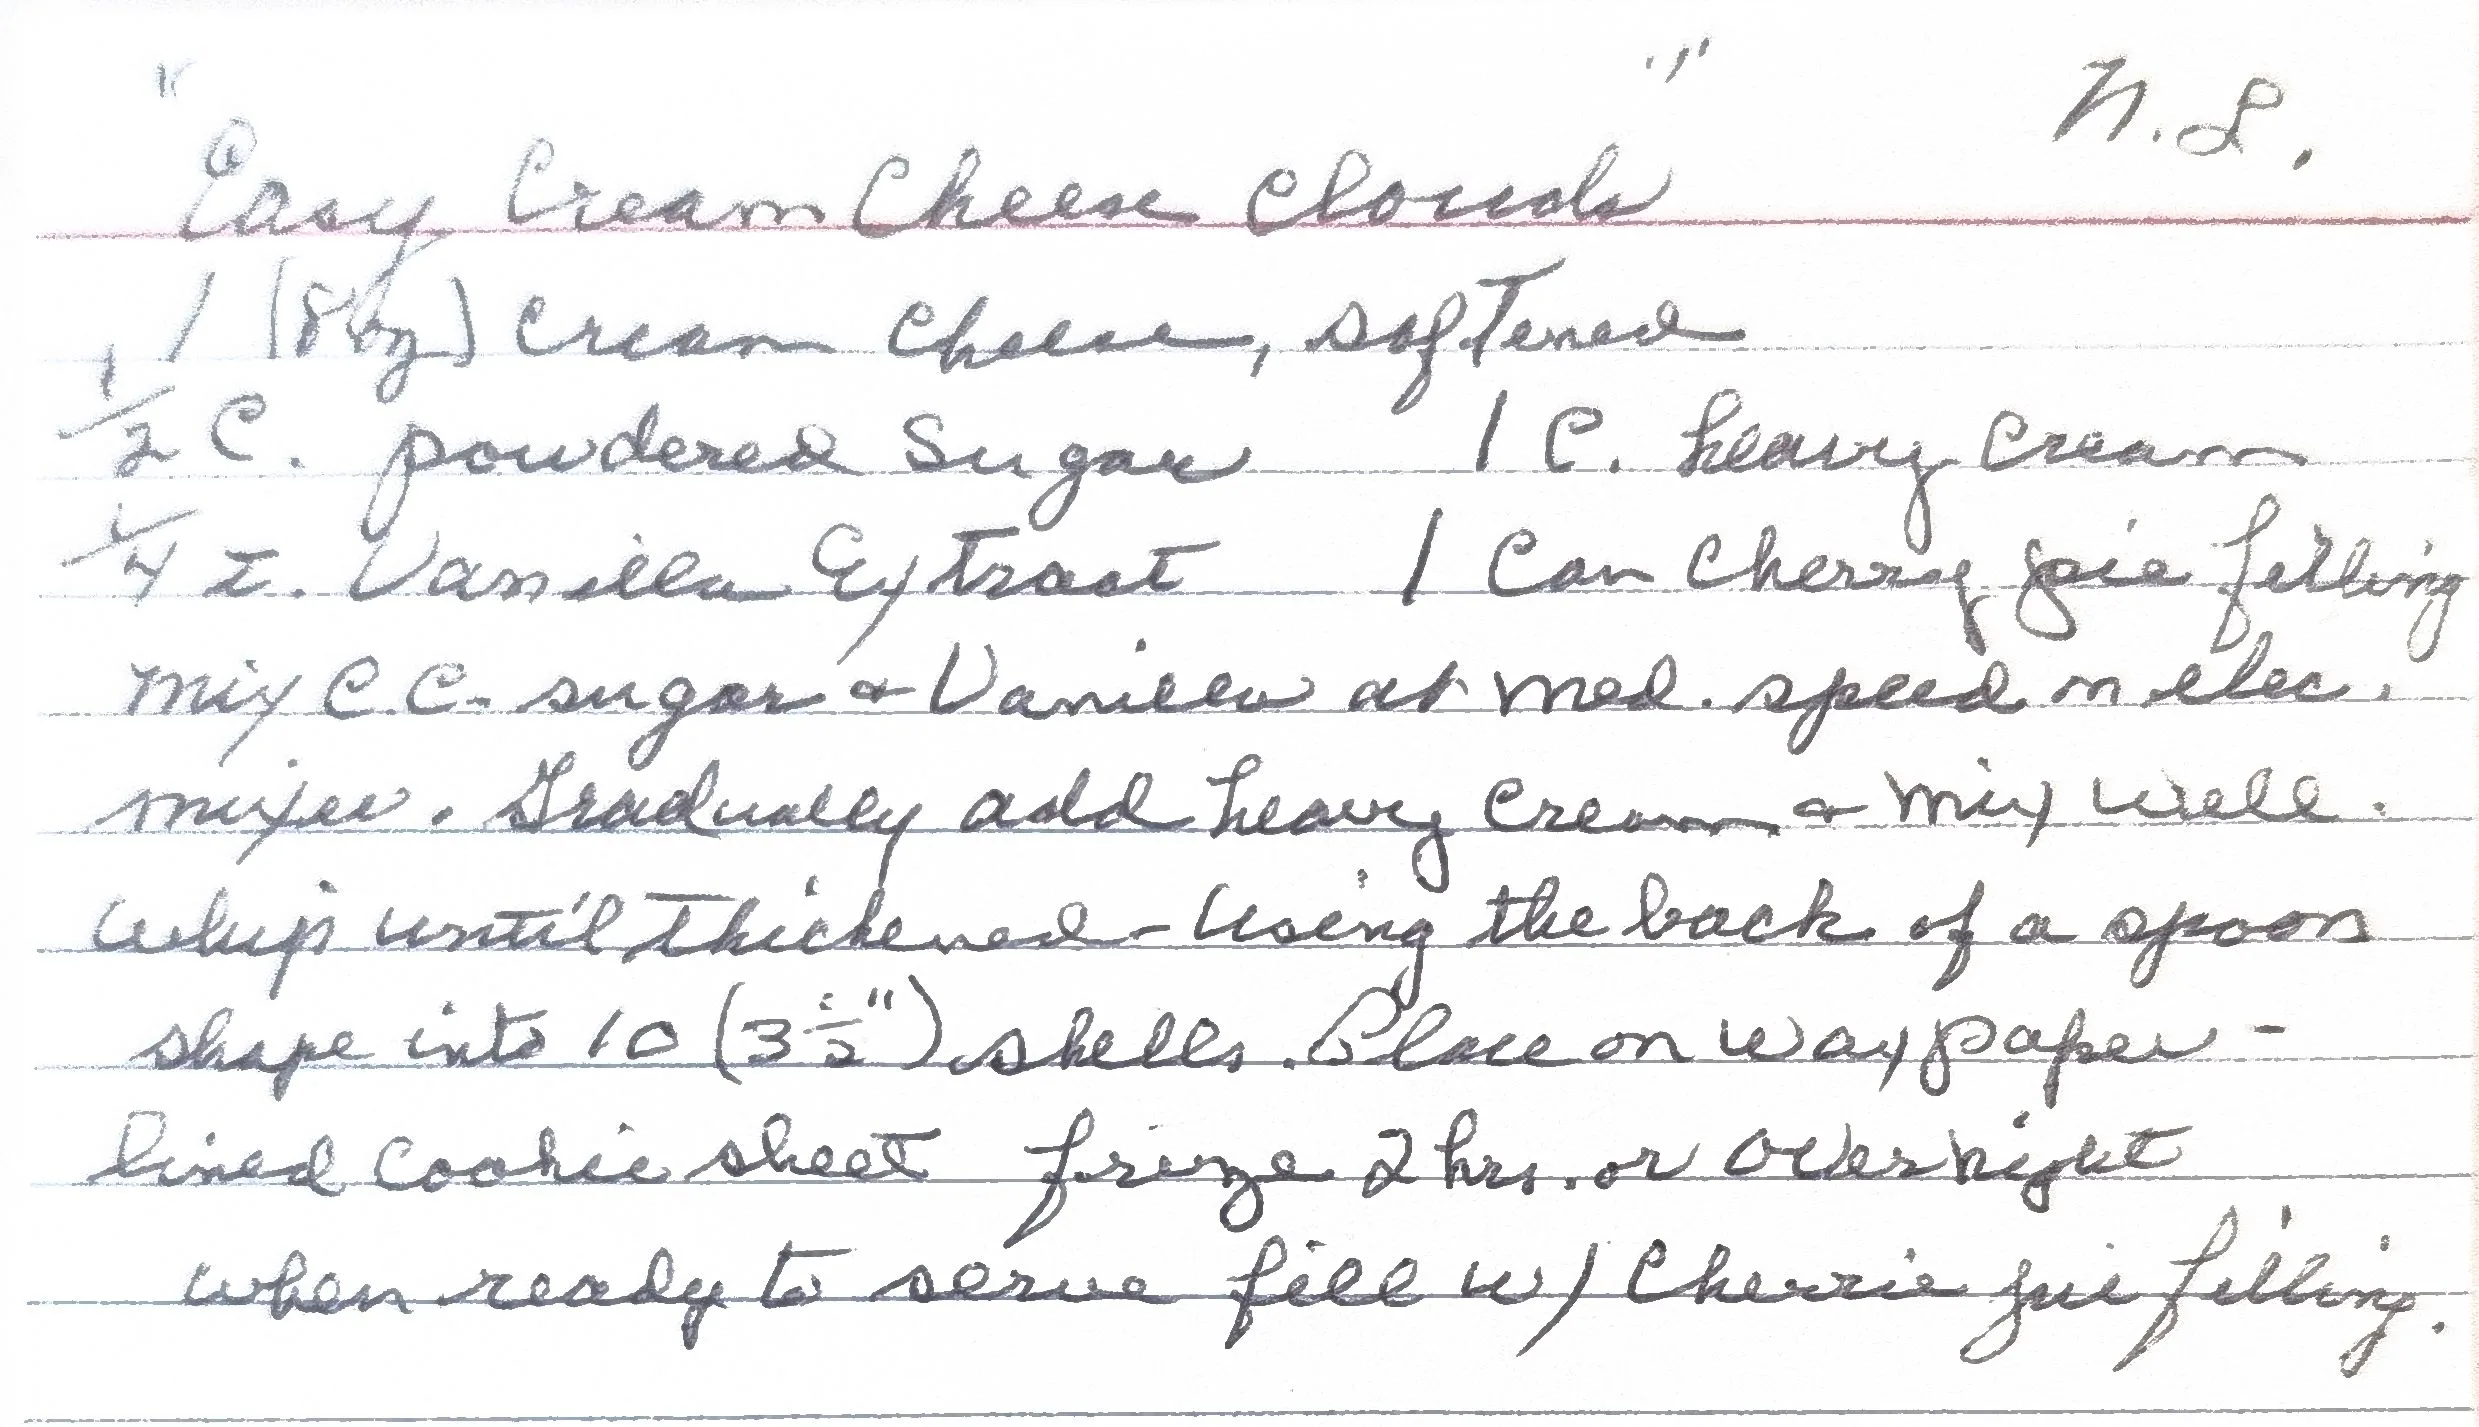 "Easy Cream Cheese Clouds" N.L.
1 (8 oz) Cream Cheese, softened
1/2 C. powdered Sugar 1 C. heavy Cream
1/4 t. Vanilla Extract 1 Can Cherry pie filling
Mix C.C. sugar & Vanilla at med. speed on elec.
mixer. Gradually add heavy Cream & Mix well.
Whip until thickened - Using the back of a spoon
shape into 10 (3 1/2") shells. Place on wax paper -
lined Cookie sheet freeze 2 hrs. or overnight
when ready to serve fill w/ Cherrie pie filling.